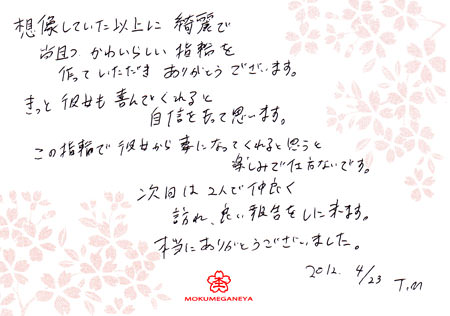 想像していた以上に 綺麗で
尚且つ かわいらしい 指輪を
作っていただき ありがとう ございます。
きっと 彼女も 喜んでくれると
自信をもって思います。
この指輪で 彼女から 妻になってくれると思うと
楽しみで仕方ないです。
次回は 2人で仲良く
訪れ、良い報告をしに来ます。
本当にありがとうございました。
2012. 4/23 T.M
MOKUMEGANEYA